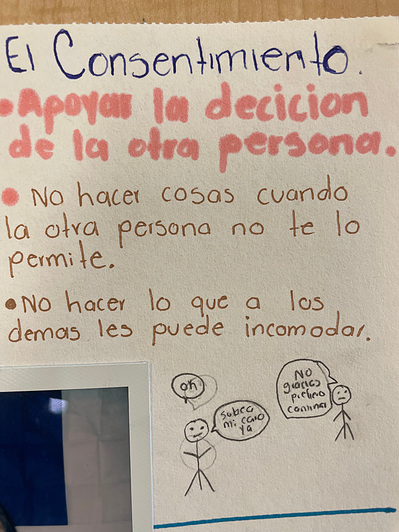 El Consentimiento.
• Apoyar la decicion
de la otra persona.
• No hacer cosas cuando
la otra persona no te lo
permite.
• No hacer lo que a los
demas les puede incomodar.
oh
Subea
mi carro
ya
No
gracias
prefiero
caminar